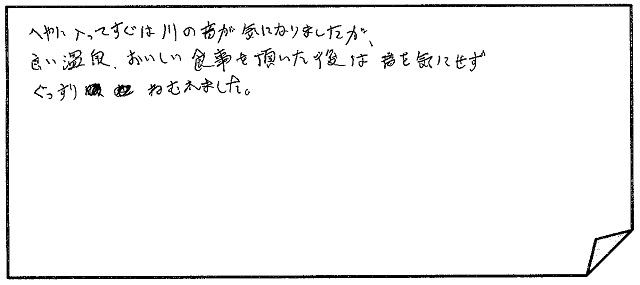 へやに入ってすぐは川の音が気になりましたが、
良い温泉、おいしい食事を頂いた後は音を気にせず
ぐっすり ねむれました。